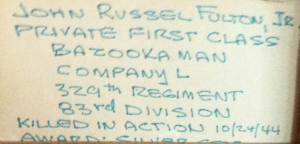 John Russel Fulton, Jr.
Private First Class
Bazooka Man
Company L
329th Regiment
83rd Division
Killed in Action 10/24/44
Award: Silver Star